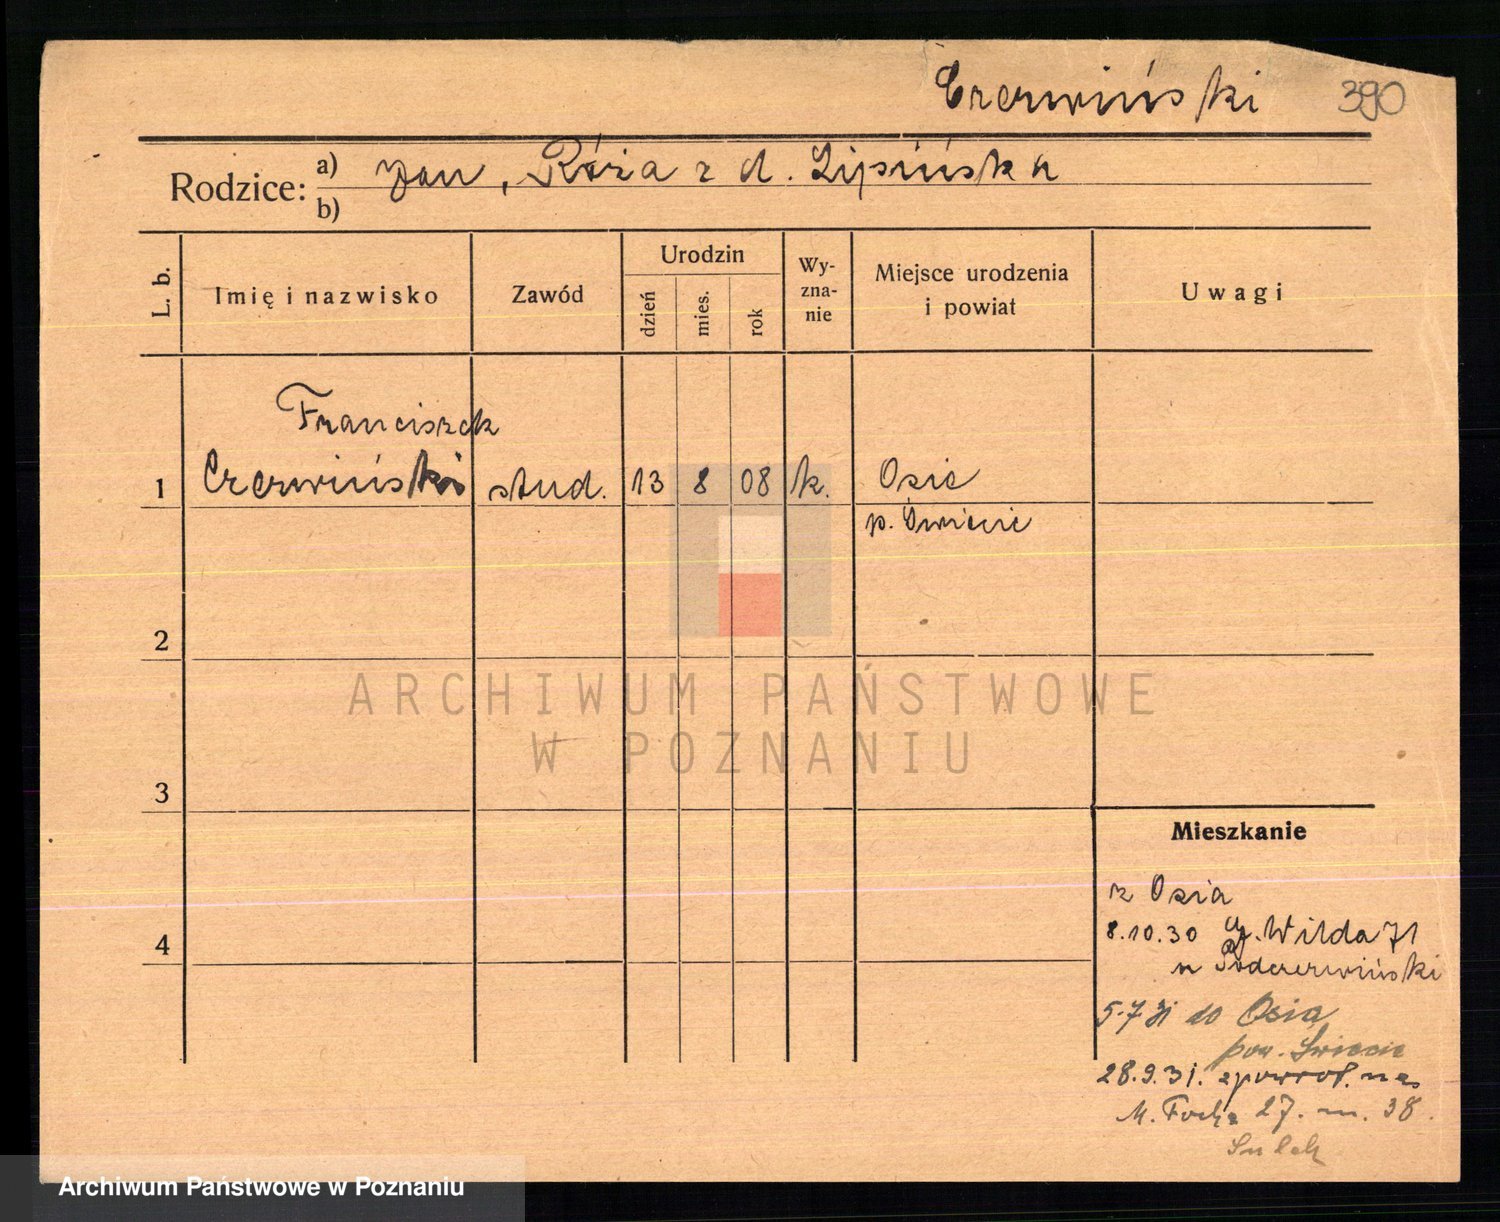 Czerwiński 390
Rodzice: a) Jan, Róża z d. Lipińska
b)
L. b.
Imię i nazwisko
Zawód
Urodzin
dzień
mies.
rok
Wy-
zna-
nie
Miejsce urodzenia
i powiat
Uwagi
Franciszek
1 Czerwiński stud. 13 8 08 k. Osie
p. Świecie
2
ARCHIWUM PAŃSTWOWE
W POZNANIU
3
Mieszkanie
z Osia
8.10.30 Wilda 71
4
u Podczerwiński
5.7 31 do Osia
pow. Świecie
28.9.31. zpowrot.
M. Focha 27. m. 38.
Archiwum Państwowe w Poznaniu